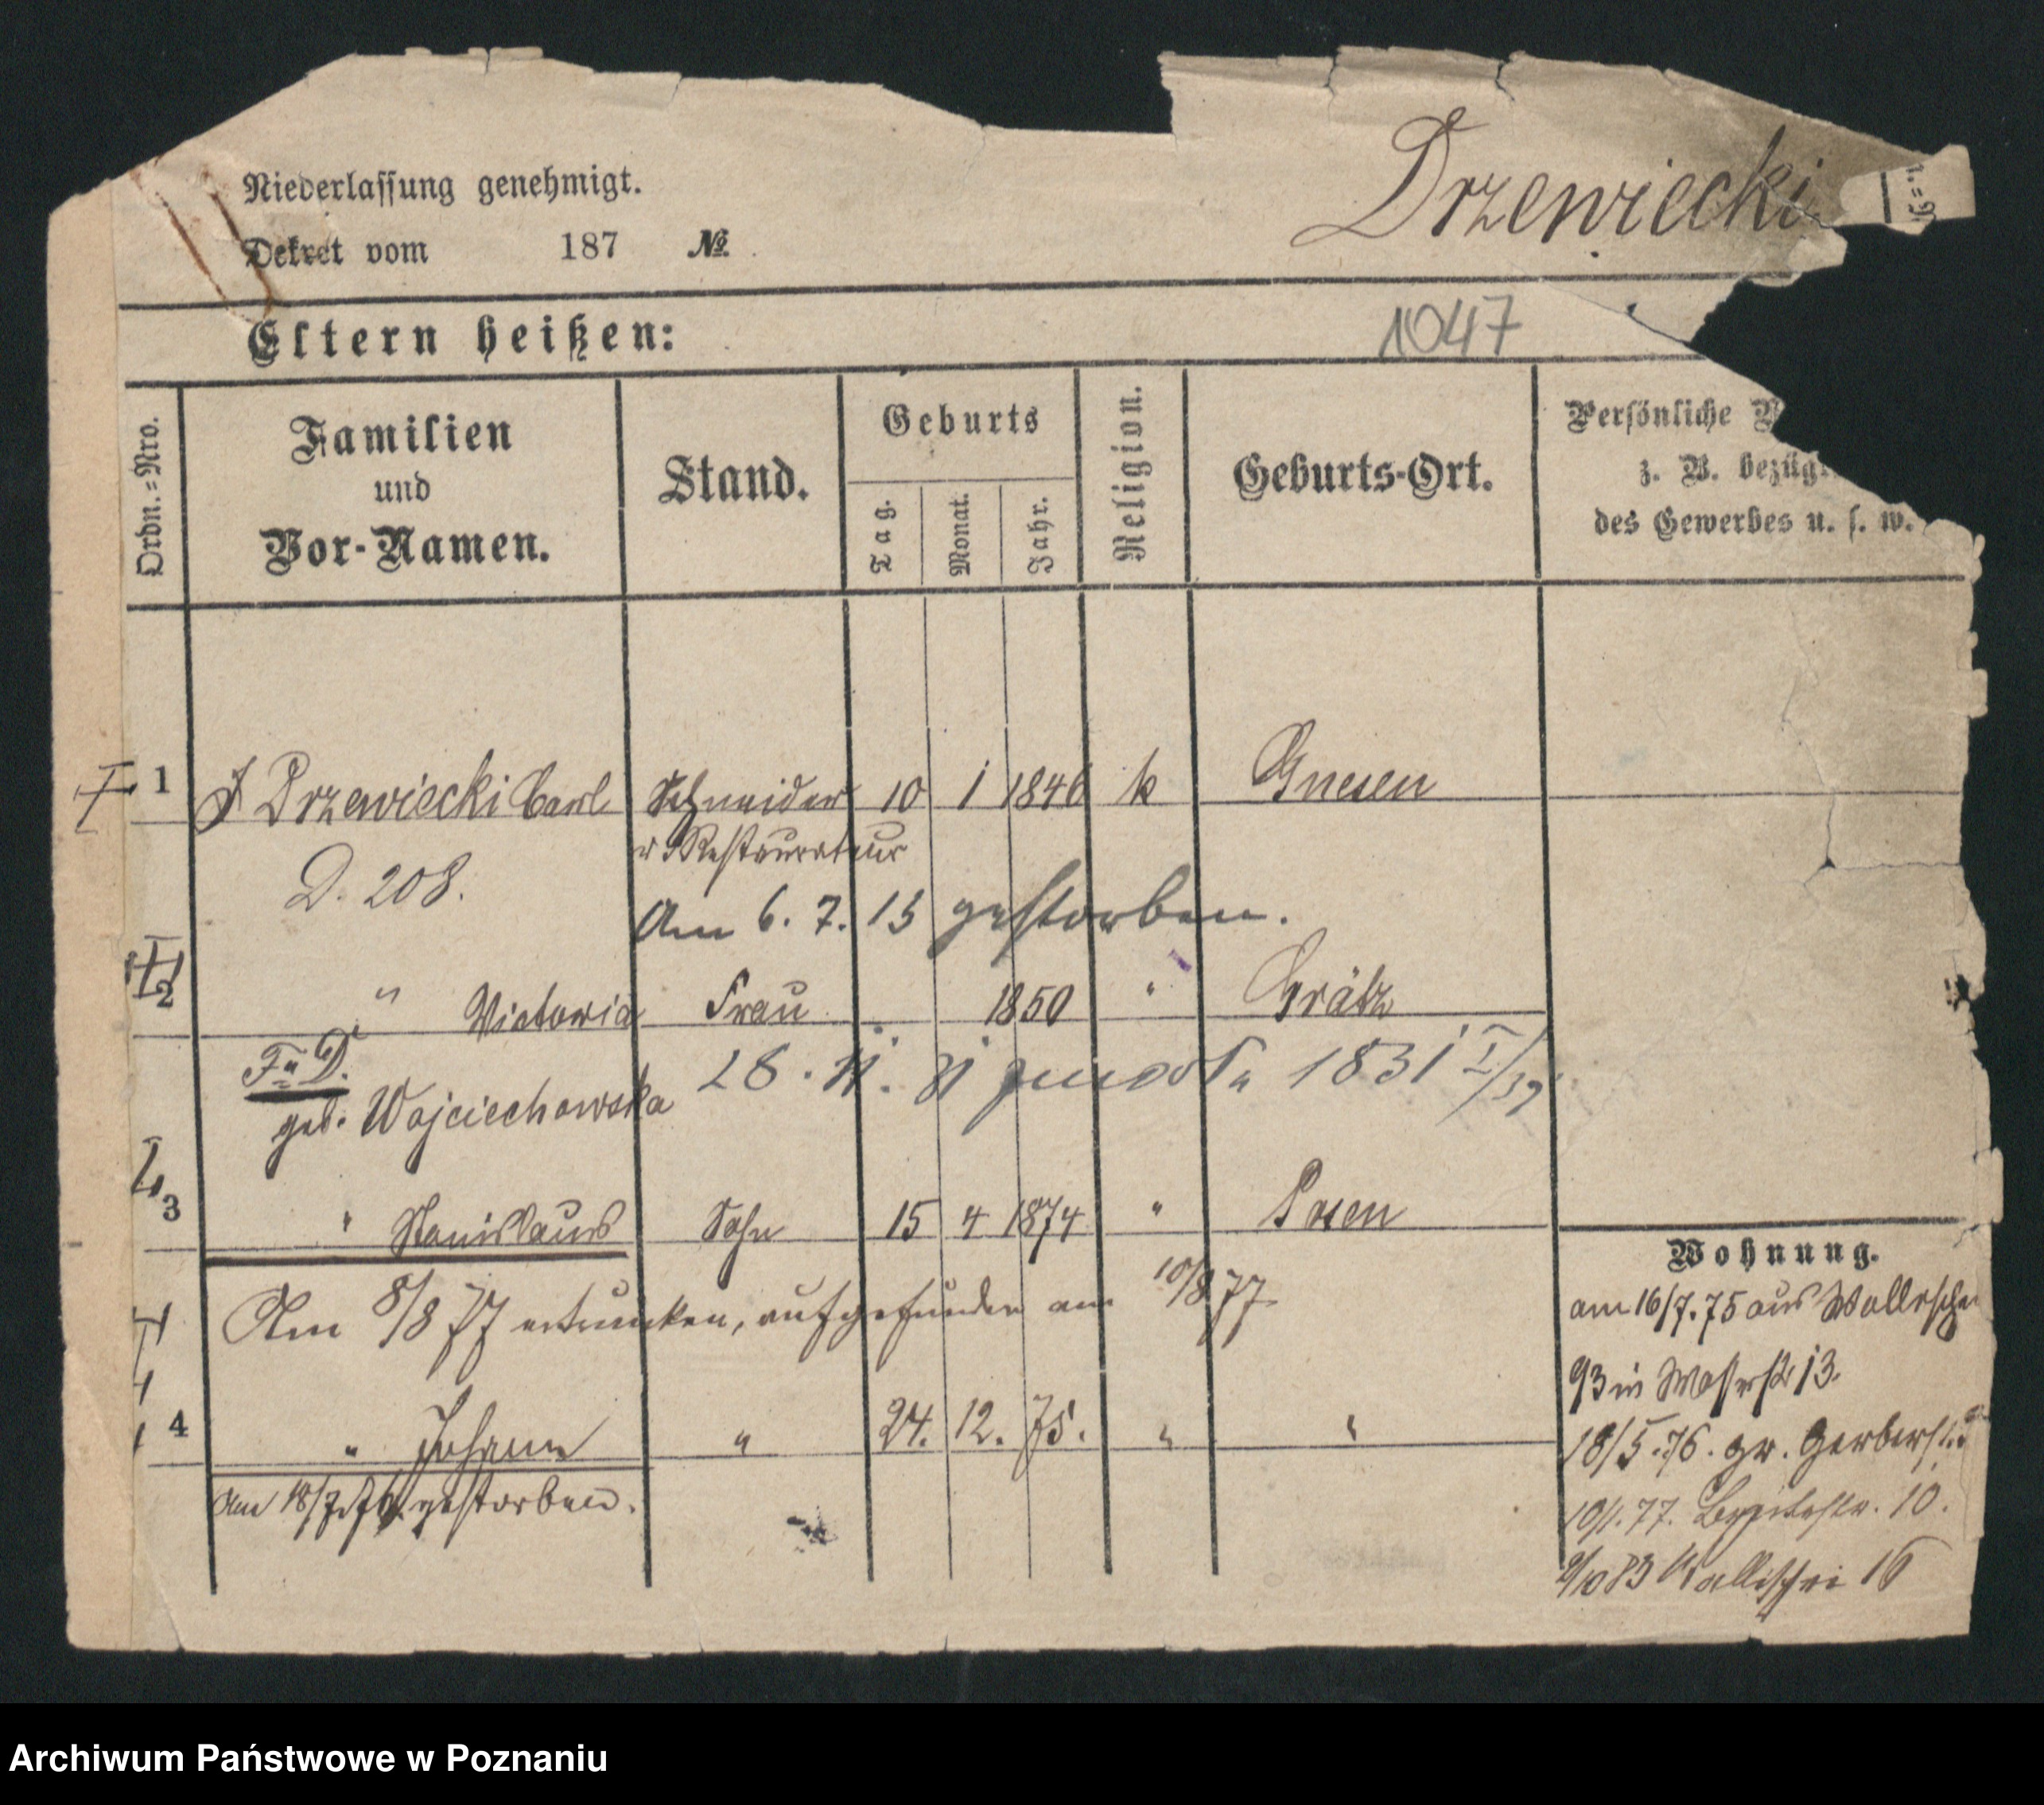 Niederlassung genehmigt.
Drzewiecki
Dekret vom 187 №
Eltern heißen:
1047
Ordn.=Nro.
Familien
und
Vor-Namen.
Stand.
Geburts
Tag.
Monat.
Jahr.
Religion.
Geburts-Ort.
Persönliche
z. B. bezügl.
des Gewerbes u. s. w.
1 Drzewiecki Carl Schneider 10 1 1846 k Gnesen
Restaurateur
D. 208.
Am 6. 7. 15 gestorben.
2 " Victoria Frau 1850 " Grätz
geb. Wojciechowska
28. 11. 31 1831 I/39
3 " Stanislaus Sohn 15 4 1874 " Posen
Am 8/8 77 ertrunken, aufgefunden am 10/8 77
4 " Johann " 24. 12. 75. " "
Am 18/7. 76. gestorben.
Wohnung.
am 16/7. 75 aus Wallische
93 in 13.
18/5. 76. gr. Gerberstr.
10/1. 77. 10.
2/10 83 Wallischei 16
Archiwum Państwowe w Poznaniu